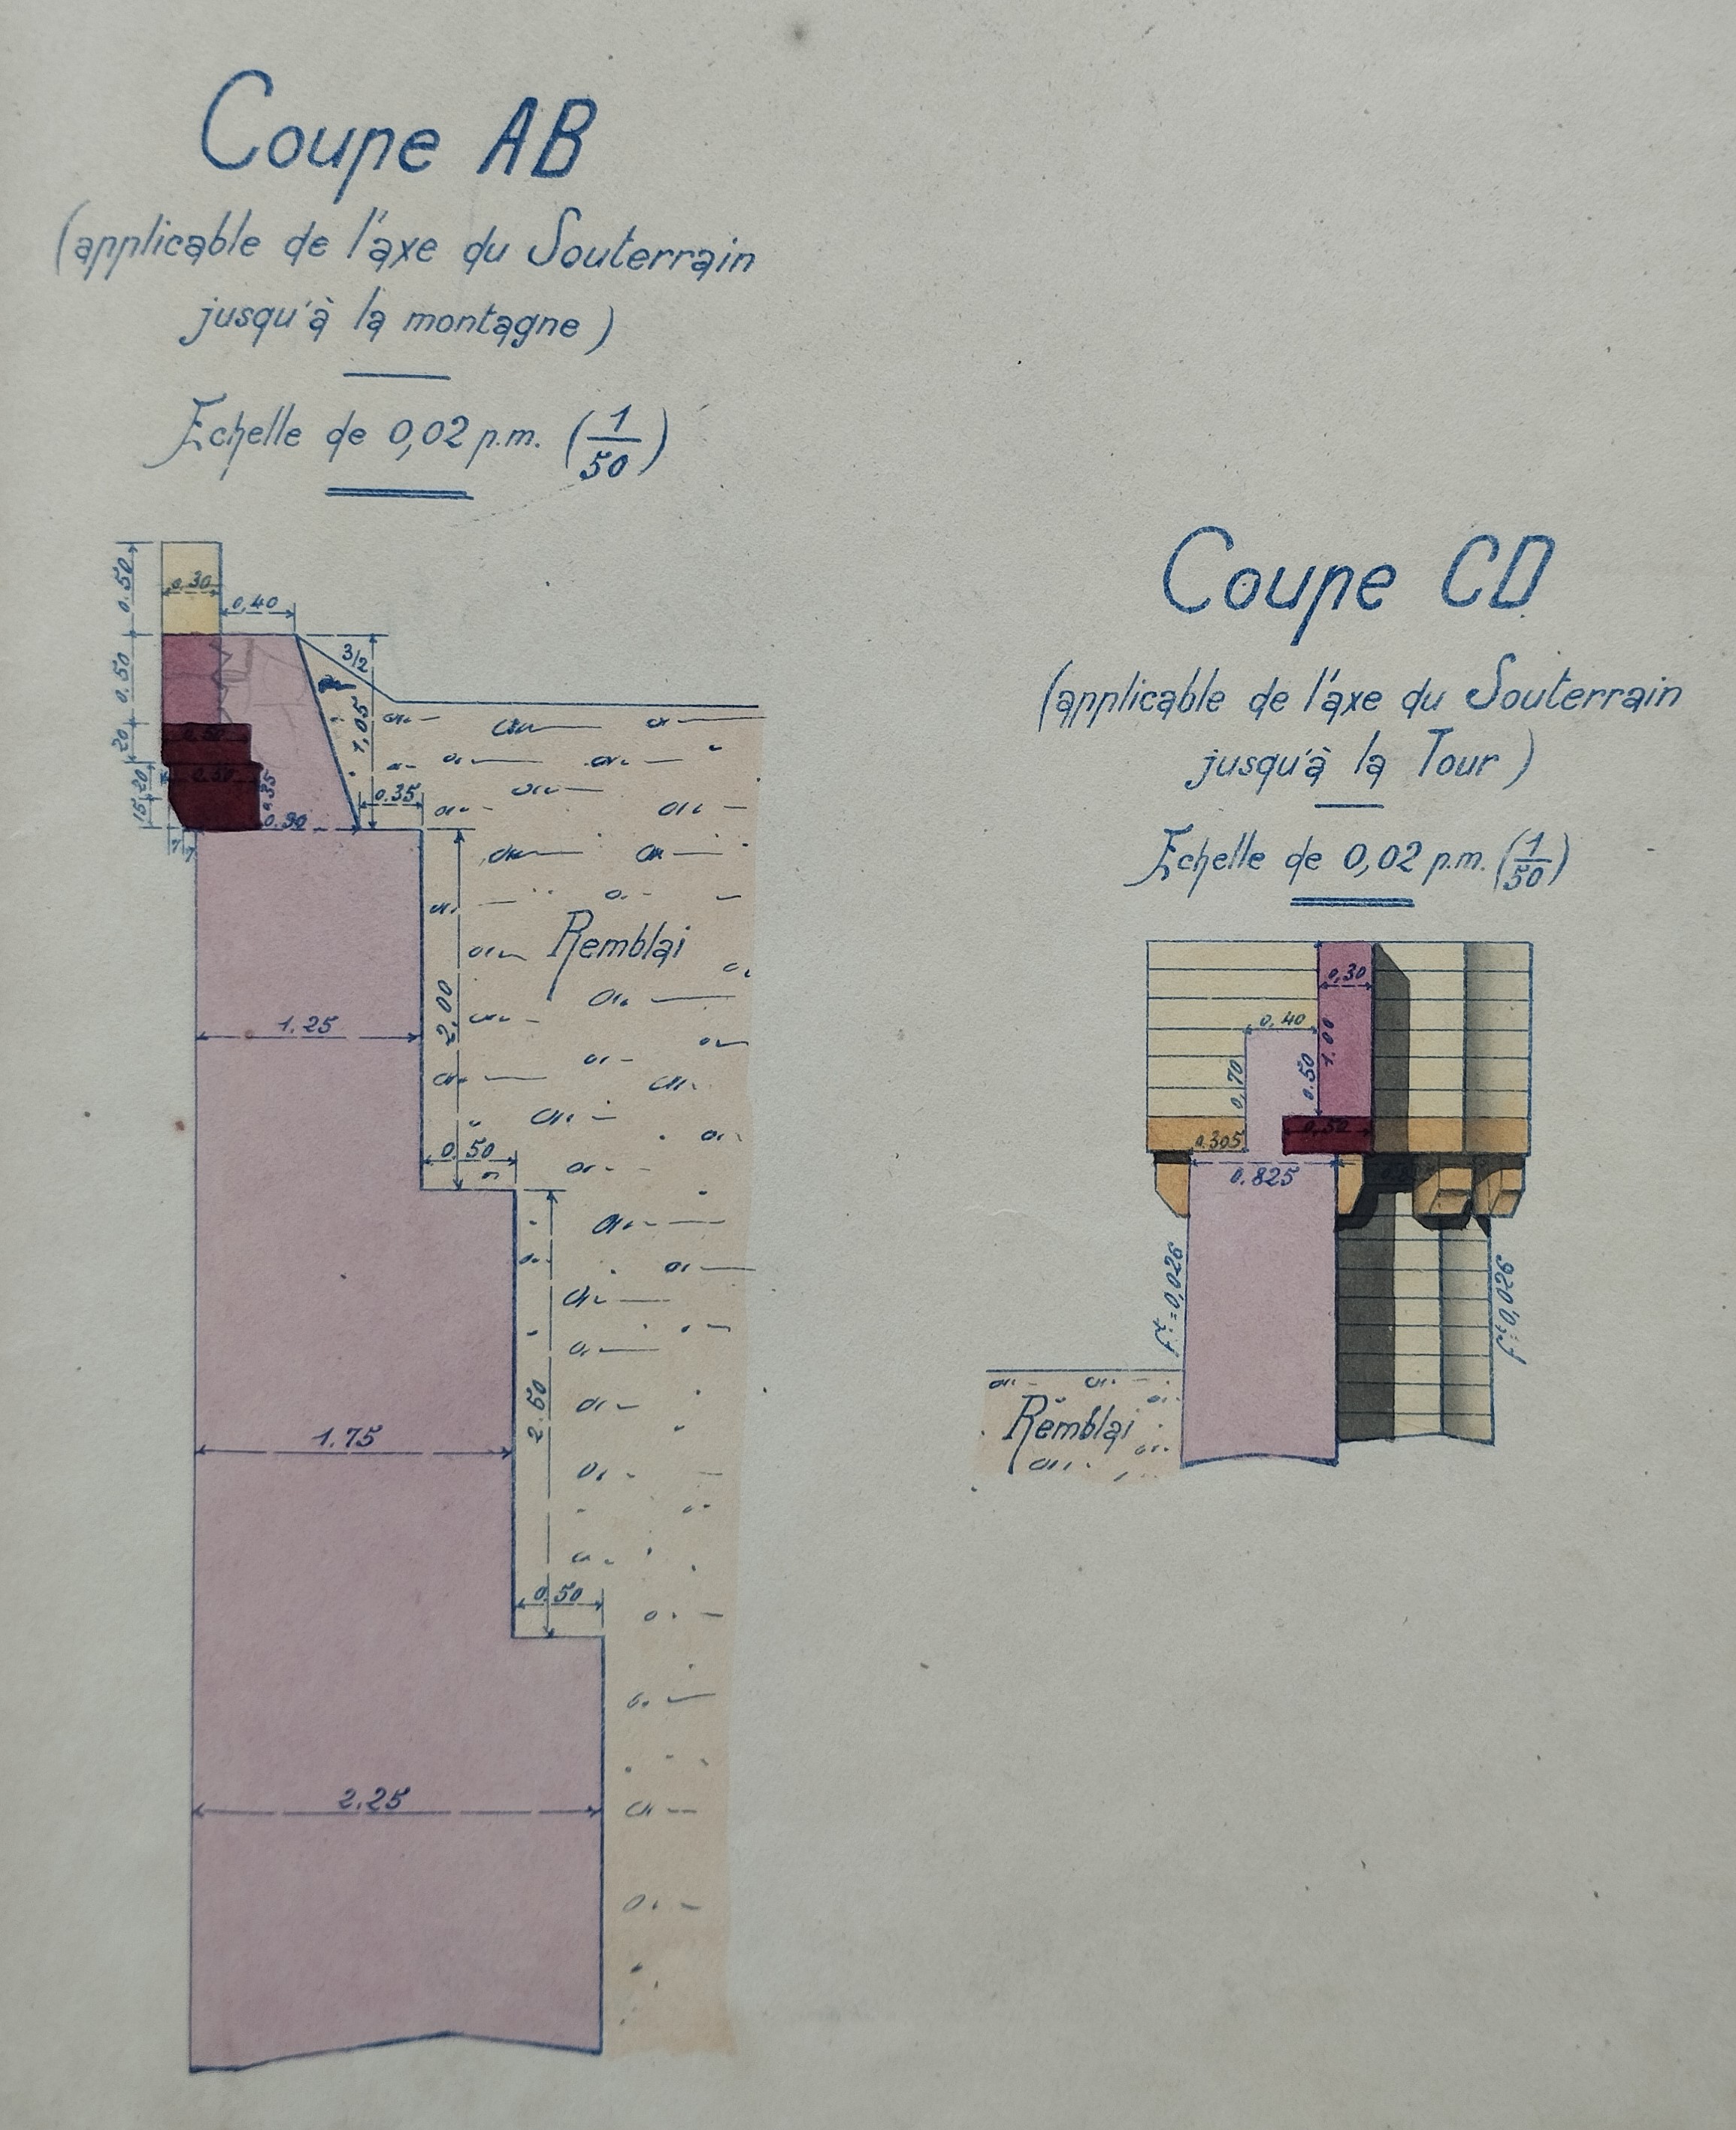 Coupe AB
(applicable de l'axe du Souterrain
jusqu'à la montagne)
Echelle de 0,02 p.m. (1/50)
0.50
0.30
0,40
3/2
0.50
1,05
20
0.50
0.50
20
15
0.35
0.90
0.35
7
7
Remblai
2,00
1.25
0.50
2.50
1.75
0.50
2.25
Coupe CD
(applicable de l'axe du Souterrain
jusqu'à la Tour)
Echelle de 0,02 p.m. (1/50)
0,30
0,40
1.00
0.50
0,70
0,50
0.305
0.825
ft=0,026
ft=0,026
Remblai